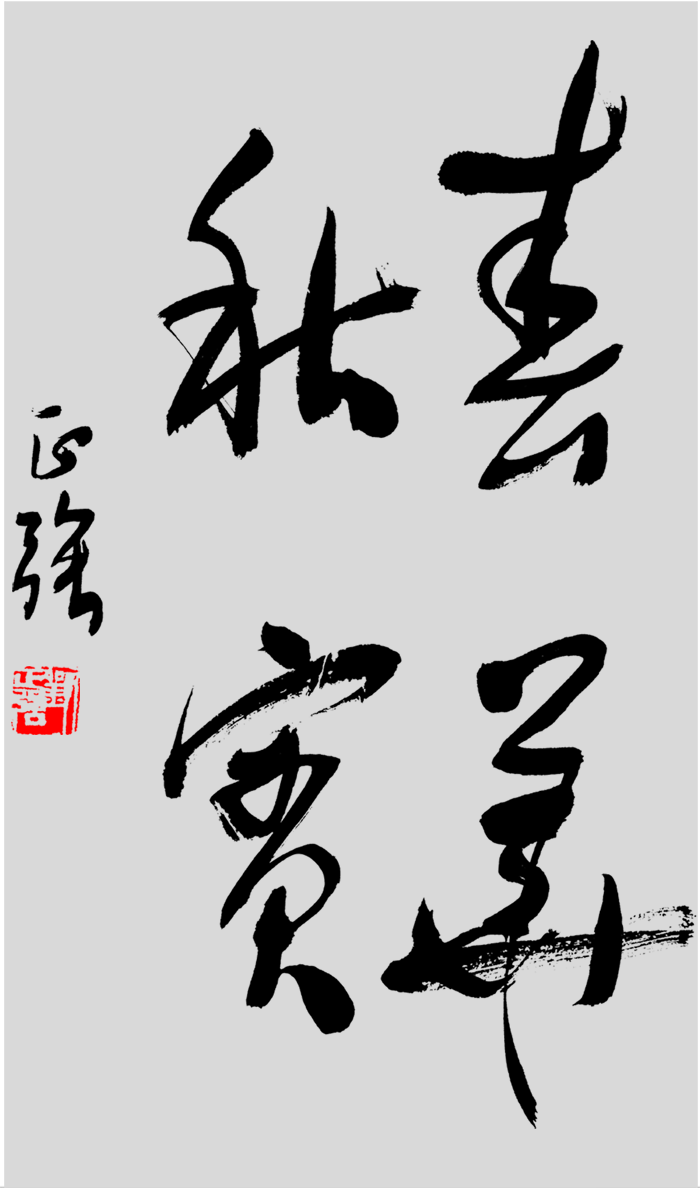 春華
秋實
正強